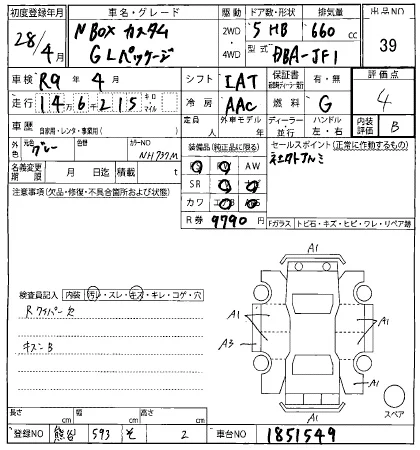 初度登録年月 車名・グレード 駆動 ドア数・形状 排気量 出品NO
28/4月 N BOX カスタム 2WD・4WD 5 HB 660 cc 39
GLパッケージ 型式 DBA-JF1
車検 R9年4月 シフト IAT 保証書 有・無 評価点
走行 146215 キロ・マイル 冷房 AAC 燃料 G 4
定員 人 外車モデル 年 ディーラー・並行 ハンドル 左・右 内装評価 B
車歴 自家用・レンタ・事業用( )
外色 元色 グレー 色替 カラーNO NH737M
装備品(純正品に限る) セールスポイント(正常に作動するもの)
名義変更期限 月 日迄 積載 t
AW
SR
カワ
R券 9790円
注意事項(欠品・修復・不具合箇所および状態)
Fガラス トビ石・キズ・ヒビ・ワレ・リペア跡
A1
検査員記入 内装 汚レ・スレ・キズ・キレ・コゲ・穴
R ワイパー欠
キズ=B
A1 A1
A3
A1
A1
スペア
長さ cm 幅 cm 高さ cm
登録NO 熊谷 593 そ 2 車台NO 1851549